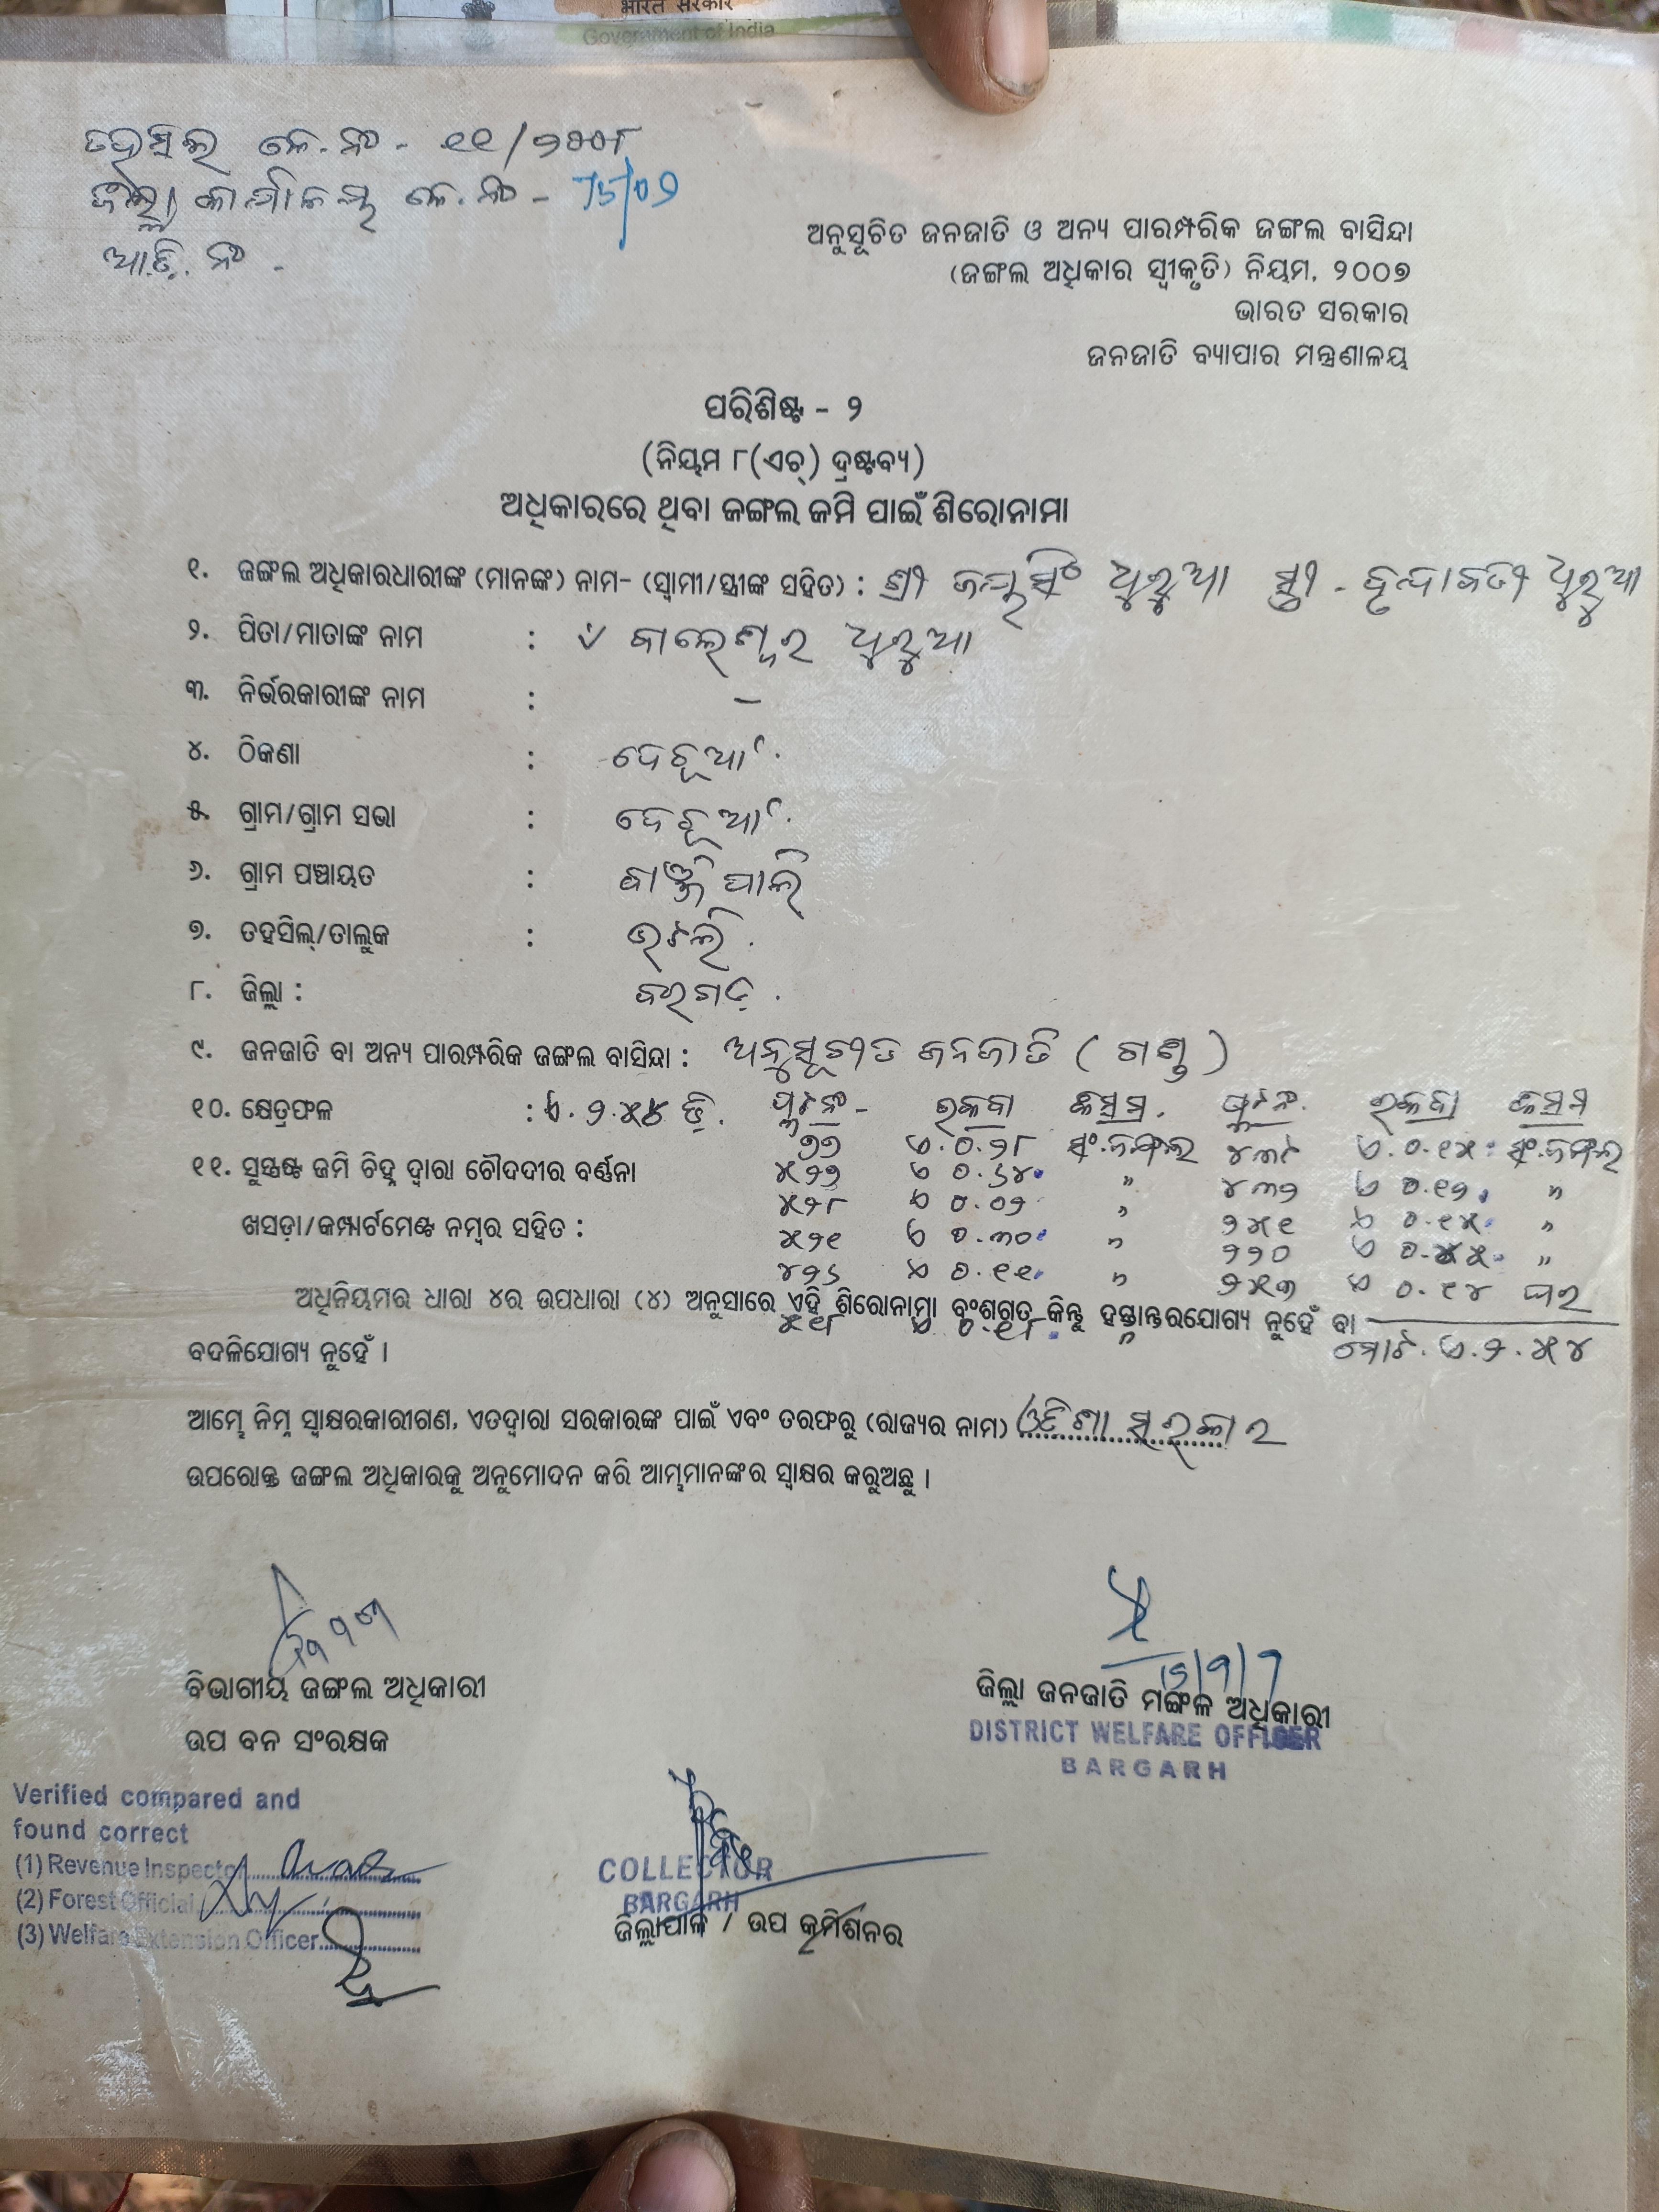 भारत सरकार
Government of India
ତହସିଲ କେ.ନଂ - ୧୧/୨୦୦୮
ଜିଲ୍ଲା କାର୍ଯାଳୟ କେ.ନଂ - 75/02
ଆ.ଡି. ନଂ -
ଅନୁସୂଚିତ ଜନଜାତି ଓ ଅନ୍ୟ ପାରମ୍ପରିକ ଜଙ୍ଗଲ ବାସିନ୍ଦା
(ଜଙ୍ଗଲ ଅଧିକାର ସ୍ୱୀକୃତି) ନିୟମ, ୨୦୦୭
ଭାରତ ସରକାର
ଜନଜାତି ବ୍ୟାପାର ମନ୍ତ୍ରଣାଳୟ
ପରିଶିଷ୍ଟ - ୨
(ନିୟମ ୮(ଏଚ୍) ଦ୍ରଷ୍ଟବ୍ୟ)
ଅଧିକାରରେ ଥିବା ଜଙ୍ଗଲ ଜମି ପାଇଁ ଶିରୋନାମା
୧. ଜଙ୍ଗଲ ଅଧିକାରଧାରୀଙ୍କ (ମାନଙ୍କ) ନାମ- (ସ୍ୱାମୀ/ସ୍ତ୍ରୀଙ୍କ ସହିତ) : ଶ୍ରୀ ଜୟସିଂ ଧୁରୁଆ ସ୍ତ୍ରୀ - ବୃନ୍ଦାବତୀ ଧୁରୁଆ
୨. ପିତା/ମାତାଙ୍କ ନାମ : ବାଲେଶ୍ୱର ଧୁରୁଆ
୩. ନିର୍ଭରକାରୀଙ୍କ ନାମ : –
୪. ଠିକଣା : ଦେଚୂଆଁ
୫. ଗ୍ରାମ/ଗ୍ରାମ ସଭା : ଦେଚୂଆଁ
୬. ଗ୍ରାମ ପଞ୍ଚାୟତ : ବାଞ୍ଜିପାଲି
୭. ତହସିଲ୍/ତାଲୁକ : ଭଟଲି.
୮. ଜିଲ୍ଲା : ବରଗଡ଼.
୯. ଜନଜାତି ବା ଅନ୍ୟ ପାରମ୍ପରିକ ଜଙ୍ଗଲ ବାସିନ୍ଦା : ଅନୁସୂଚୀତ ଜନଜାତି ( ଗଣ୍ଡ )
୧୦. କ୍ଷେତ୍ରଫଳ : ଏ. ୨.୫୪ ଡି. ପ୍ଲଟନଂ - ରକବା କିସମ. ପ୍ଲଟନଂ. ରକବା କିସମ
୭୭ ଏ.୦.୨୮ ସଂ.ଜଙ୍ଗଲ ୪୩୮ ଏ.୦.୧୫ ସଂ.ଜଙ୍ଗଲ
୧୧. ସୁସ୍ପଷ୍ଟ ଜମି ଚିହ୍ନ ଦ୍ୱାରା ଚୌଦଦୀର ବର୍ଣ୍ଣନା ୫୨୭ ଏ ୦.୬୪ " ୪୩୨ ଏ ୦.୧୨ "
୫୨୮ ଏ ୦.୦୨ " ୨୫୧ ଏ ୦.୧୫ "
ଖସଡ଼ା/କମ୍ପାର୍ଟମେଣ୍ଟ ନମ୍ବର ସହିତ : ୫୨୧ ଏ ୦.୩୦ " ୨୨୦ ଏ "
୪୨୬ ଏ ୦.୧୧ " ୨୫୩ ଏ ୦.୧୪ ଘର
ଅଧିନିୟମର ଧାରା ୪ର ଉପଧାରା (୪) ଅନୁସାରେ ଏହି ଶିରୋନାମା ବଂଶଗତ କିନ୍ତୁ ହସ୍ତାନ୍ତରଯୋଗ୍ୟ ନୁହେଁ ବା
୫୧୮ ଏ ୦.୧୮ "
ବଦଳିଯୋଗ୍ୟ ନୁହେଁ । ମୋଟ. ଏ.୨.୫୪
ଆମ୍ଭେ ନିମ୍ନ ସ୍ୱାକ୍ଷରକାରୀଗଣ, ଏତଦ୍ୱାରା ସରକାରଙ୍କ ପାଇଁ ଏବଂ ତରଫରୁ (ରାଜ୍ୟର ନାମ) ଓଡିଶା ସରକାର
ଉପରୋକ୍ତ ଜଙ୍ଗଲ ଅଧିକାରକୁ ଅନୁମୋଦନ କରି ଆମ୍ଭମାନଙ୍କର ସ୍ୱାକ୍ଷର କରୁଅଛୁ ।
ବିଭାଗୀୟ ଜଙ୍ଗଲ ଅଧିକାରୀ
ଉପ ବନ ସଂରକ୍ଷକ
ଜିଲ୍ଲା ଜନଜାତି ମଙ୍ଗଳ ଅଧିକାରୀ
DISTRICT WELFARE OFFICER
BARGARH
Verified compared and
found correct
(1) Revenue Inspector
(2) Forest Official
(3) Welfare Extension Officer
COLLECTOR
BARGARH
ଜିଲ୍ଲାପାଳ / ଉପ କମିଶନର